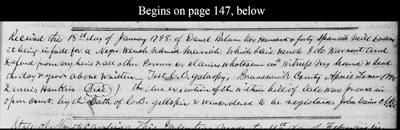 Begins on page 147, below
Received the 18th day of January 1798. of David Bloom One Hundred & forty Spanish Mill Dollars
it being in full for a Negro Wench named Mariah, Which said Wench I do Warrant and
Defend from my heirs & all other Persons or Claims whatsoever. Witness my hand & Seal
the day & year above Written Test C. D. galaspy, Brunswick County April Term 1798
Dennis Hankins (Seal) the due execution of the within bill of Sale was prove in
open court, by the Oath of C. D. gillespie & was ordered to be registered
State of North Carolina This Indenture made 18th